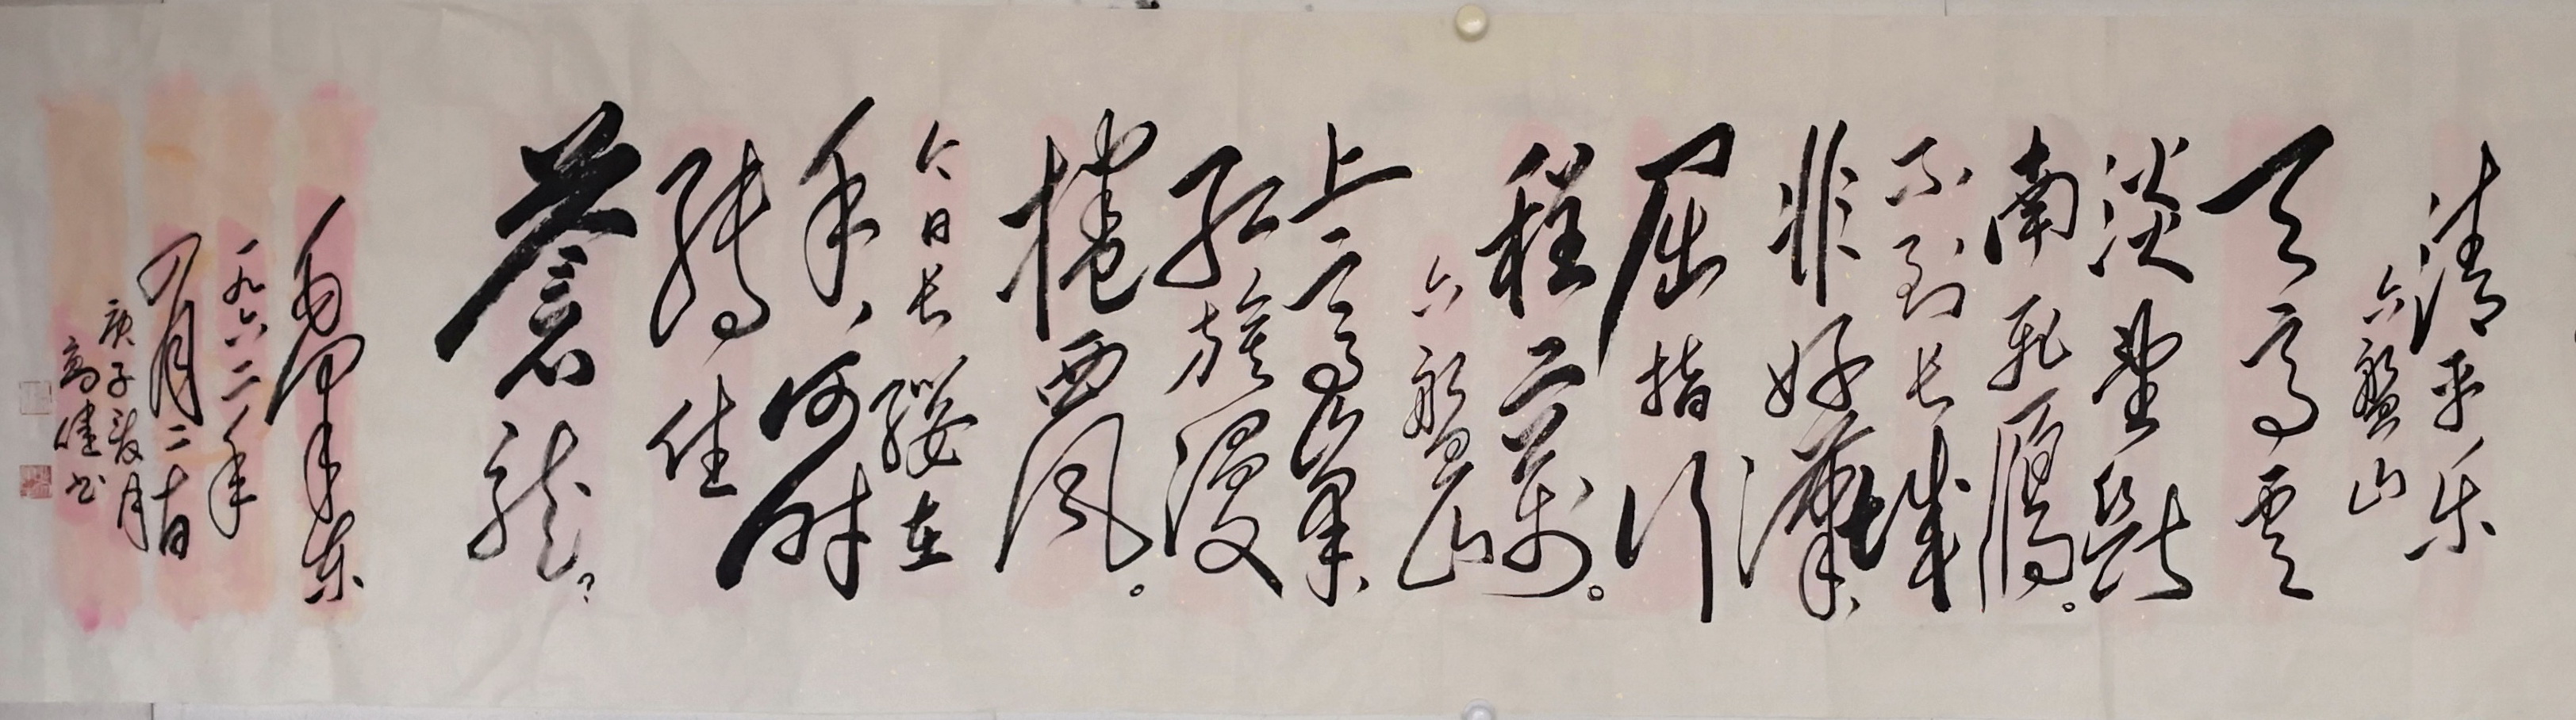 清平乐
六盤山
天高云
淡望断
南飞鴈。
不到长城
非好漢、
屈指行
程二万。
六盤山
上高峯、
红旗漫
捲西风。
今日长缨在
手、何时
缚住
蒼龙?
毛泽东
一九六二年
四月二十日
庚子月
高健书